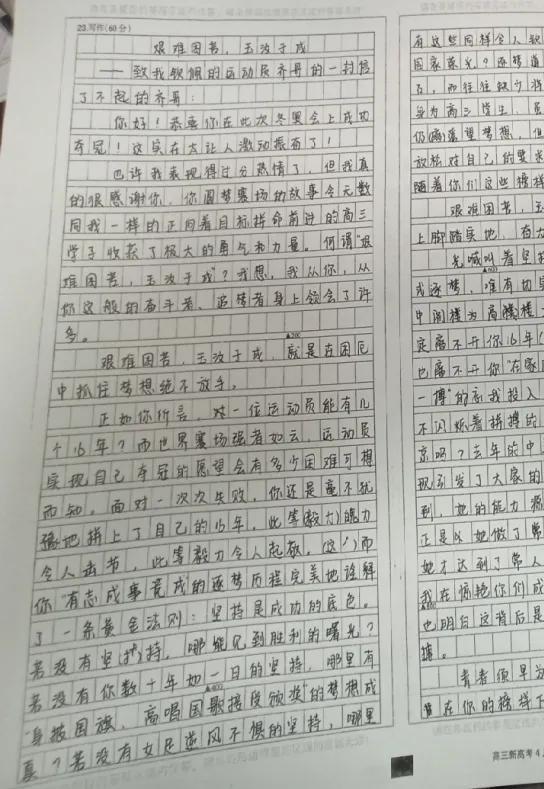 23.写作(60分)
艰难困苦，玉汝于成
——致我钦佩的运动员齐哥的一封信
了不起的齐哥：
你好！恭喜你在此次冬奥会上成功
夺冠！这实在太让人激动振奋了！
也许我表现得过分热情了，但我真
的很感谢你。你圆梦赛场的故事令无数
同我一样的正向着目标拼命前进的高三
学子收获了极大的勇气和力量。何谓“艰
难困苦，玉汝于成”？我想，我从你，从
你这般的奋斗者、追梦者身上领会了许
多。
▲200
艰难困苦，玉汝于成，就是在困厄
中抓住梦想绝不放手。
正如你所言，对一位运动员能有几
个16年？而世界赛场强者如云，运动员
实现自己夺冠的愿望会有多少困难可想
而知。面对一次次失败，你还是毫不犹
豫地拼上了自己的15年，此等毅力魄力
令人击节，此等毅力令人起敬。这，而
你“有志成事竟成”的逐梦历程完美地诠释
了一条黄金法则：坚持是成功的底色。
若没有坚持，哪能见到胜利的曙光？
若没有你数十年如一日的坚持，哪里有
▲400
“身披国旗，高唱国歌接受颁奖”的梦想成
真？若没有女足逆风不惧的坚持，哪里
有这些同样令人钦
国家荣光？逐梦道
放松对自己的要求
随着你们这些榜样
艰难困苦，玉
上脚踏实地，奋力
光喊叫着坚持
▲600
或逐梦，唯有切实
中阁楼为高楼
定离不开你16年
也离不开你“在家
一博”的忘我投入
不闪烁着拼搏的
京吗？去年的中
现引发了大家的
到，她的能力
正是以她做了常
她才达到了常人
我在惋艳你们成
▲800
也明白这背后是
搏。
青春须早
在你的榜样下
高三新高考4